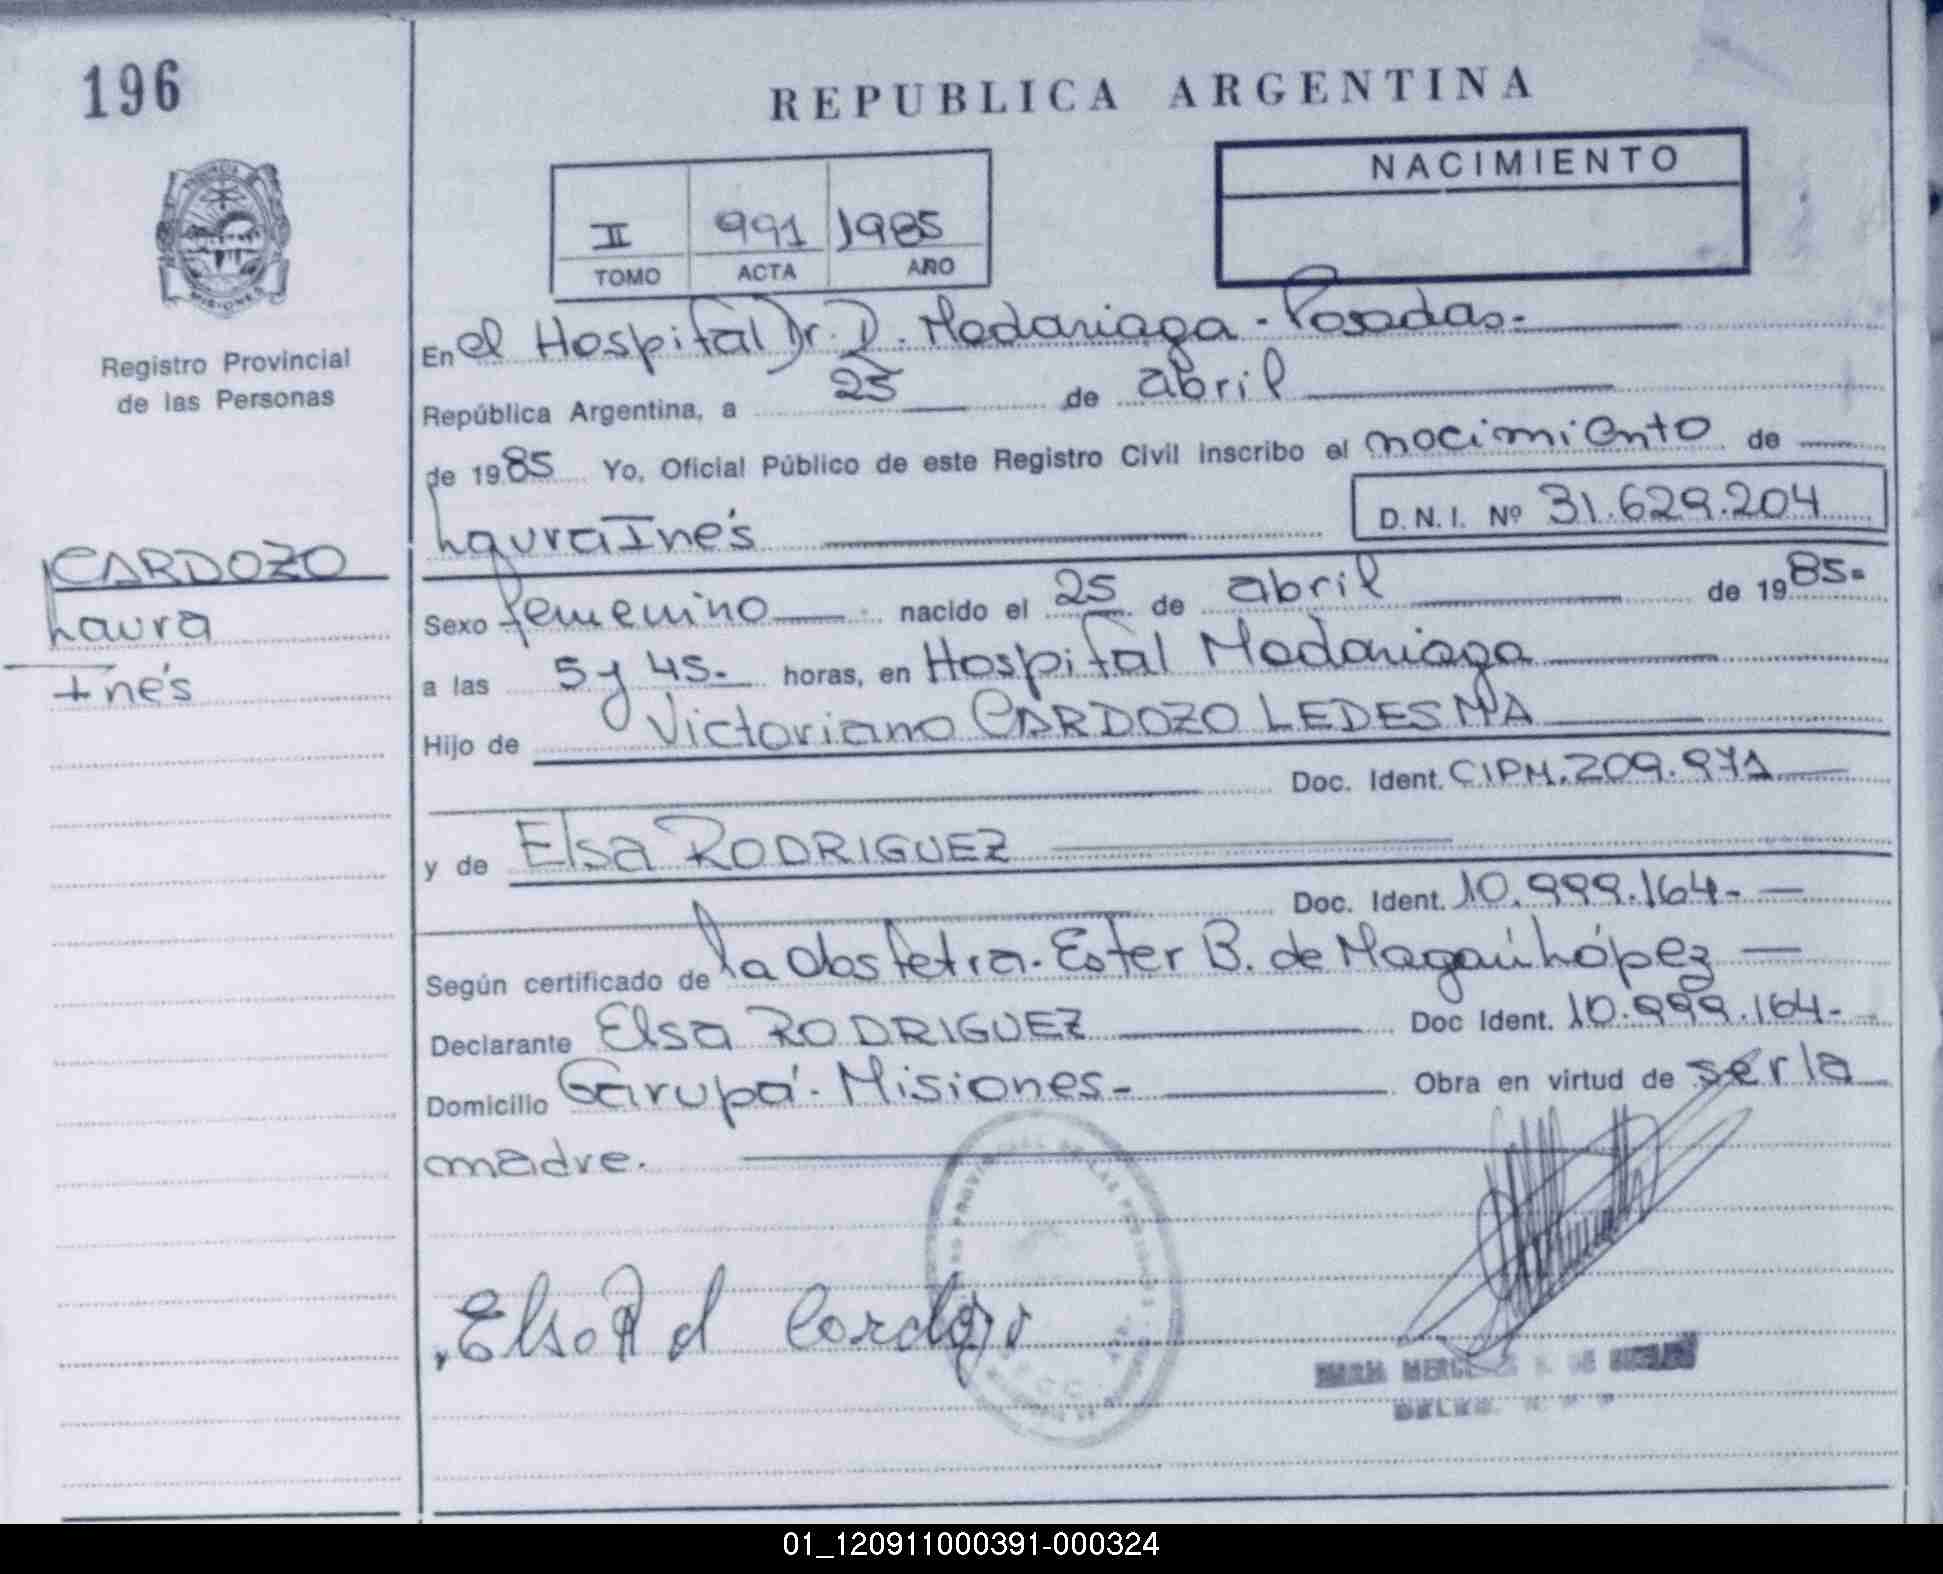 196
REPUBLICA ARGENTINA
NACIMIENTO
II 991 1985
TOMO ACTA AÑO
MISIONES
Registro Provincial
de las Personas
CARDOZO
Laura
Inés
En el Hospital Dr. D. Madariaga - Posadas.-
República Argentina, a 25 de abril
de 1985 Yo, Oficial Público de este Registro Civil inscribo el nacimiento de
Laura Inés D.N.I. Nº 31.629.204
Sexo femenino nacido el 25 de abril de 1985-
a las 5 y 45.- horas, en Hospital Madariaga
Hijo de Victoriano CARDOZO LEDESMA
Doc. Ident. CIPM. 209.971
y de Elsa RODRIGUEZ
Doc. Ident. 10.999.164.-
Según certificado de la obstetra. Ester B. de López
Declarante Elsa RODRIGUEZ Doc Ident. 10.999.164.-
Domicilio Garupá - Misiones - Obra en virtud de ser la
madre.
Elsa R d Cardozo
01_120911000391-000324